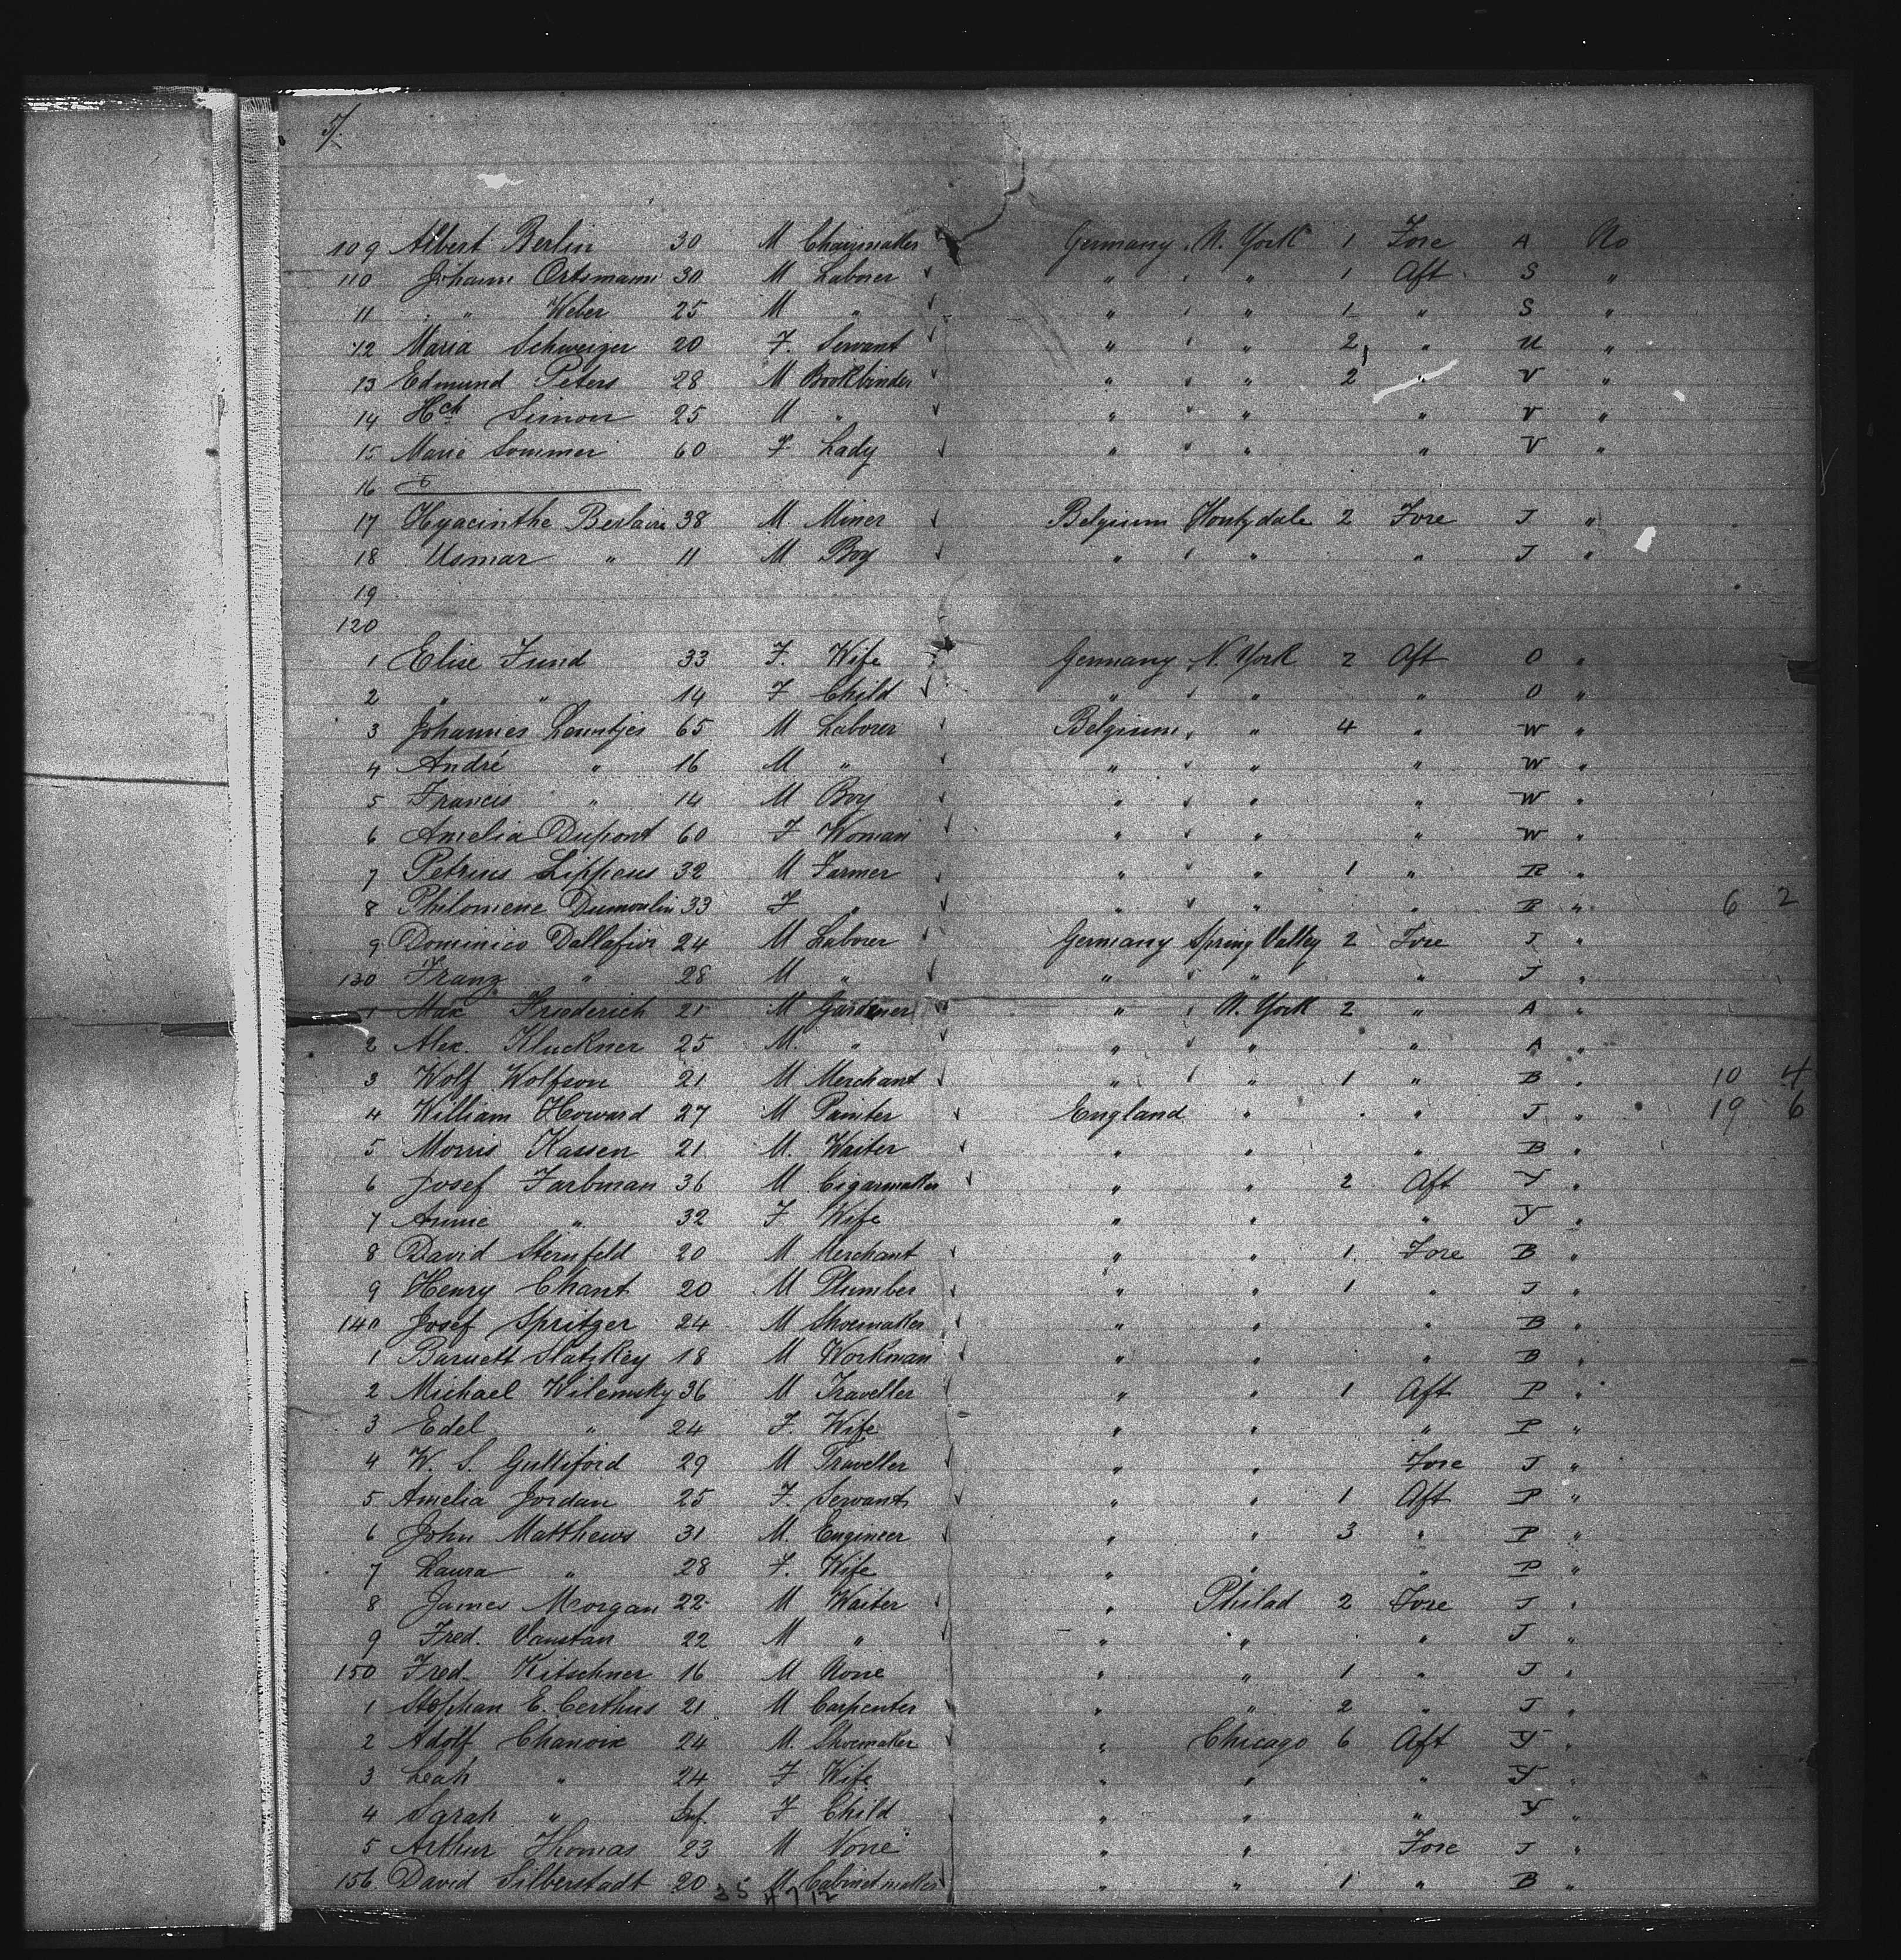 5/.
109 Albert Berlin 30 M Chairmaker Germany N. York 1 Fore A No
110 Johann Ortsmann 30 M Laborer " " 1 Aft S "
11 " Weber 25 M " " " 1 " S "
12 Maria Schweizer 20 F. Servant " " 2 " U "
13 Edmund Peters 28 M Bookbinder " " 2 " V "
14 Hch Simon 25 M " " " " V "
15 Marie Sommer 60 F Lady " " " V "
16
17 Hyacinthe 38 M. Miner Belgium Houtzdale 2 Fore J "
18 Usmar " 11 M Boy " " " J "
19
120
1 Elise Fund 33 F. Wife Germany N. York 2 Aft O "
2 " " 14 F Child " " " O "
3 Johannes Leuntjes 65 M Laborer Belgium " 4 " W "
4 André " 16 M " " " " W "
5 Francis " 14 M Boy " " " W "
6 Amelia Dupont 60 F Woman " " " W "
7 Petrius Lippeus 32 M Farmer " " 1 " R "
8 Philomene Dumoulin 33 F " " " " R " 6 2
9 Dominico Dallafior 24 M Laborer Germany Spring Valley 2 Fore J "
130 Franz " 28 M " " " " J "
1 Max Friederich 21 M Gardener " N. York 2 " A "
2 Alex. Kluckner 25 M. " " " " A "
3 Wolf Wolfson 21 M Merchant " " 1 " B " 10 4
4 William Howard 27 M Painter England " " J " 19 6
5 Morris Kassen 21 M. Waiter " " " B "
6 Josef Farbman 36 M Cigarmaker " " 2 Aft Y "
7 Annie " 32 F Wife " " " Y "
8 David Sternfeld 20 M Merchant " " 1 Fore B "
9 Henry Chant 20 M Plumber " " 1 " J "
140 Josef Spritzer 24 M Shoemaker " " " B "
1 Barnett Slatzkey 18 M Workman " " " B "
2 Michael Wilemsky 36 M Traveller " " 1 Aft P "
3 Edel " 24 F. Wife " " " P "
4 W. S. Gulliford 29 M Traveller " " Fore J "
5 Amelia Jordan 25 F. Servant " " 1 Aft P "
6 John Matthews 31 M. Engineer " " 3 " P "
7 Laura " 28 F. Wife " " " P "
8 James Morgan 22 M Waiter " Philad 2 Fore J "
9 Fred. Vanstan 22 M " " " " J "
150 Fred. Kitschner 16 M None " " 1 " J "
1 Stephan E. Certhus 21 M Carpenter " " 2 " J "
2 Adolf Chanoix 24 M. Shoemaker " Chicago 6 Aft Y "
3 Leah " 24 F Wife " " " Y "
4 Sarah " Inf. F Child " " " Y "
5 Arthur Thomas 23 M None " " Fore J "
156 David Silberstadt 20 M Cabinetmaker " " 1 " B "
35 4 7 12